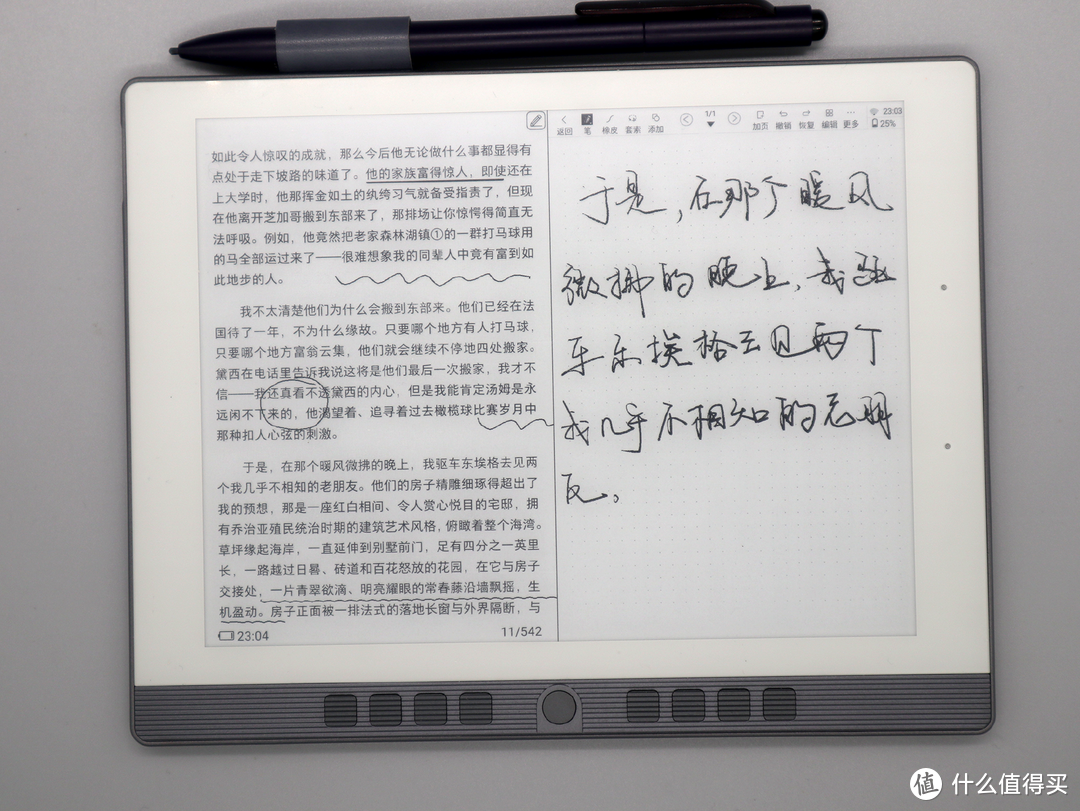 如此令人惊叹的成就，那么今后他无论做什么事都显得有
点处于走下坡路的味道了。他的家族富得惊人，即使还在
上大学时，他那挥金如土的纨绔习气就备受指责了，但现
在他离开芝加哥搬到东部来了，那排场让你惊愕得简直无
法呼吸。例如，他竟然把老家森林湖镇①的一群打马球用
的马全部运过来了——很难想象我的同辈人中竟有富到如
此地步的人。
我不太清楚他们为什么会搬到东部来。他们已经在法
国待了一年，不为什么缘故。只要哪个地方有人打马球，
只要哪个地方富翁云集，他们就会继续不停地四处搬家。
黛西在电话里告诉我说这将是他们最后一次搬家，我才不
信——我还真看不透黛西的内心，但是我能肯定汤姆是永
远闲不下来的，他渴望着、追寻着过去橄榄球比赛岁月中
那种扣人心弦的刺激。
于是，在那个暖风微拂的晚上，我驱车东埃格去见两
个我几乎不相知的老朋友。他们的房子精雕细琢得超出了
我的预想，那是一座红白相间、令人赏心悦目的宅邸，拥
有乔治亚殖民统治时期的建筑艺术风格，俯瞰着整个海湾。
草坪缘起海岸，一直延伸到别墅前门，足有四分之一英里
长，一路越过日晷、砖道和百花怒放的花园，在它与房子
交接处，一片青翠欲滴、明亮耀眼的常春藤沿墙飘摇，生
机盈动。房子正面被一排法式的落地长窗与外界隔断，与
23:04 11/542
返回 笔 橡皮 套索 添加 1/1 加页 撤销 恢复 编辑 更多 23:03 25%
于是，在那个暖风
微拂的晚上，我驱
车东埃格去见两个
我几乎不相知的老朋
友。
值 什么值得买